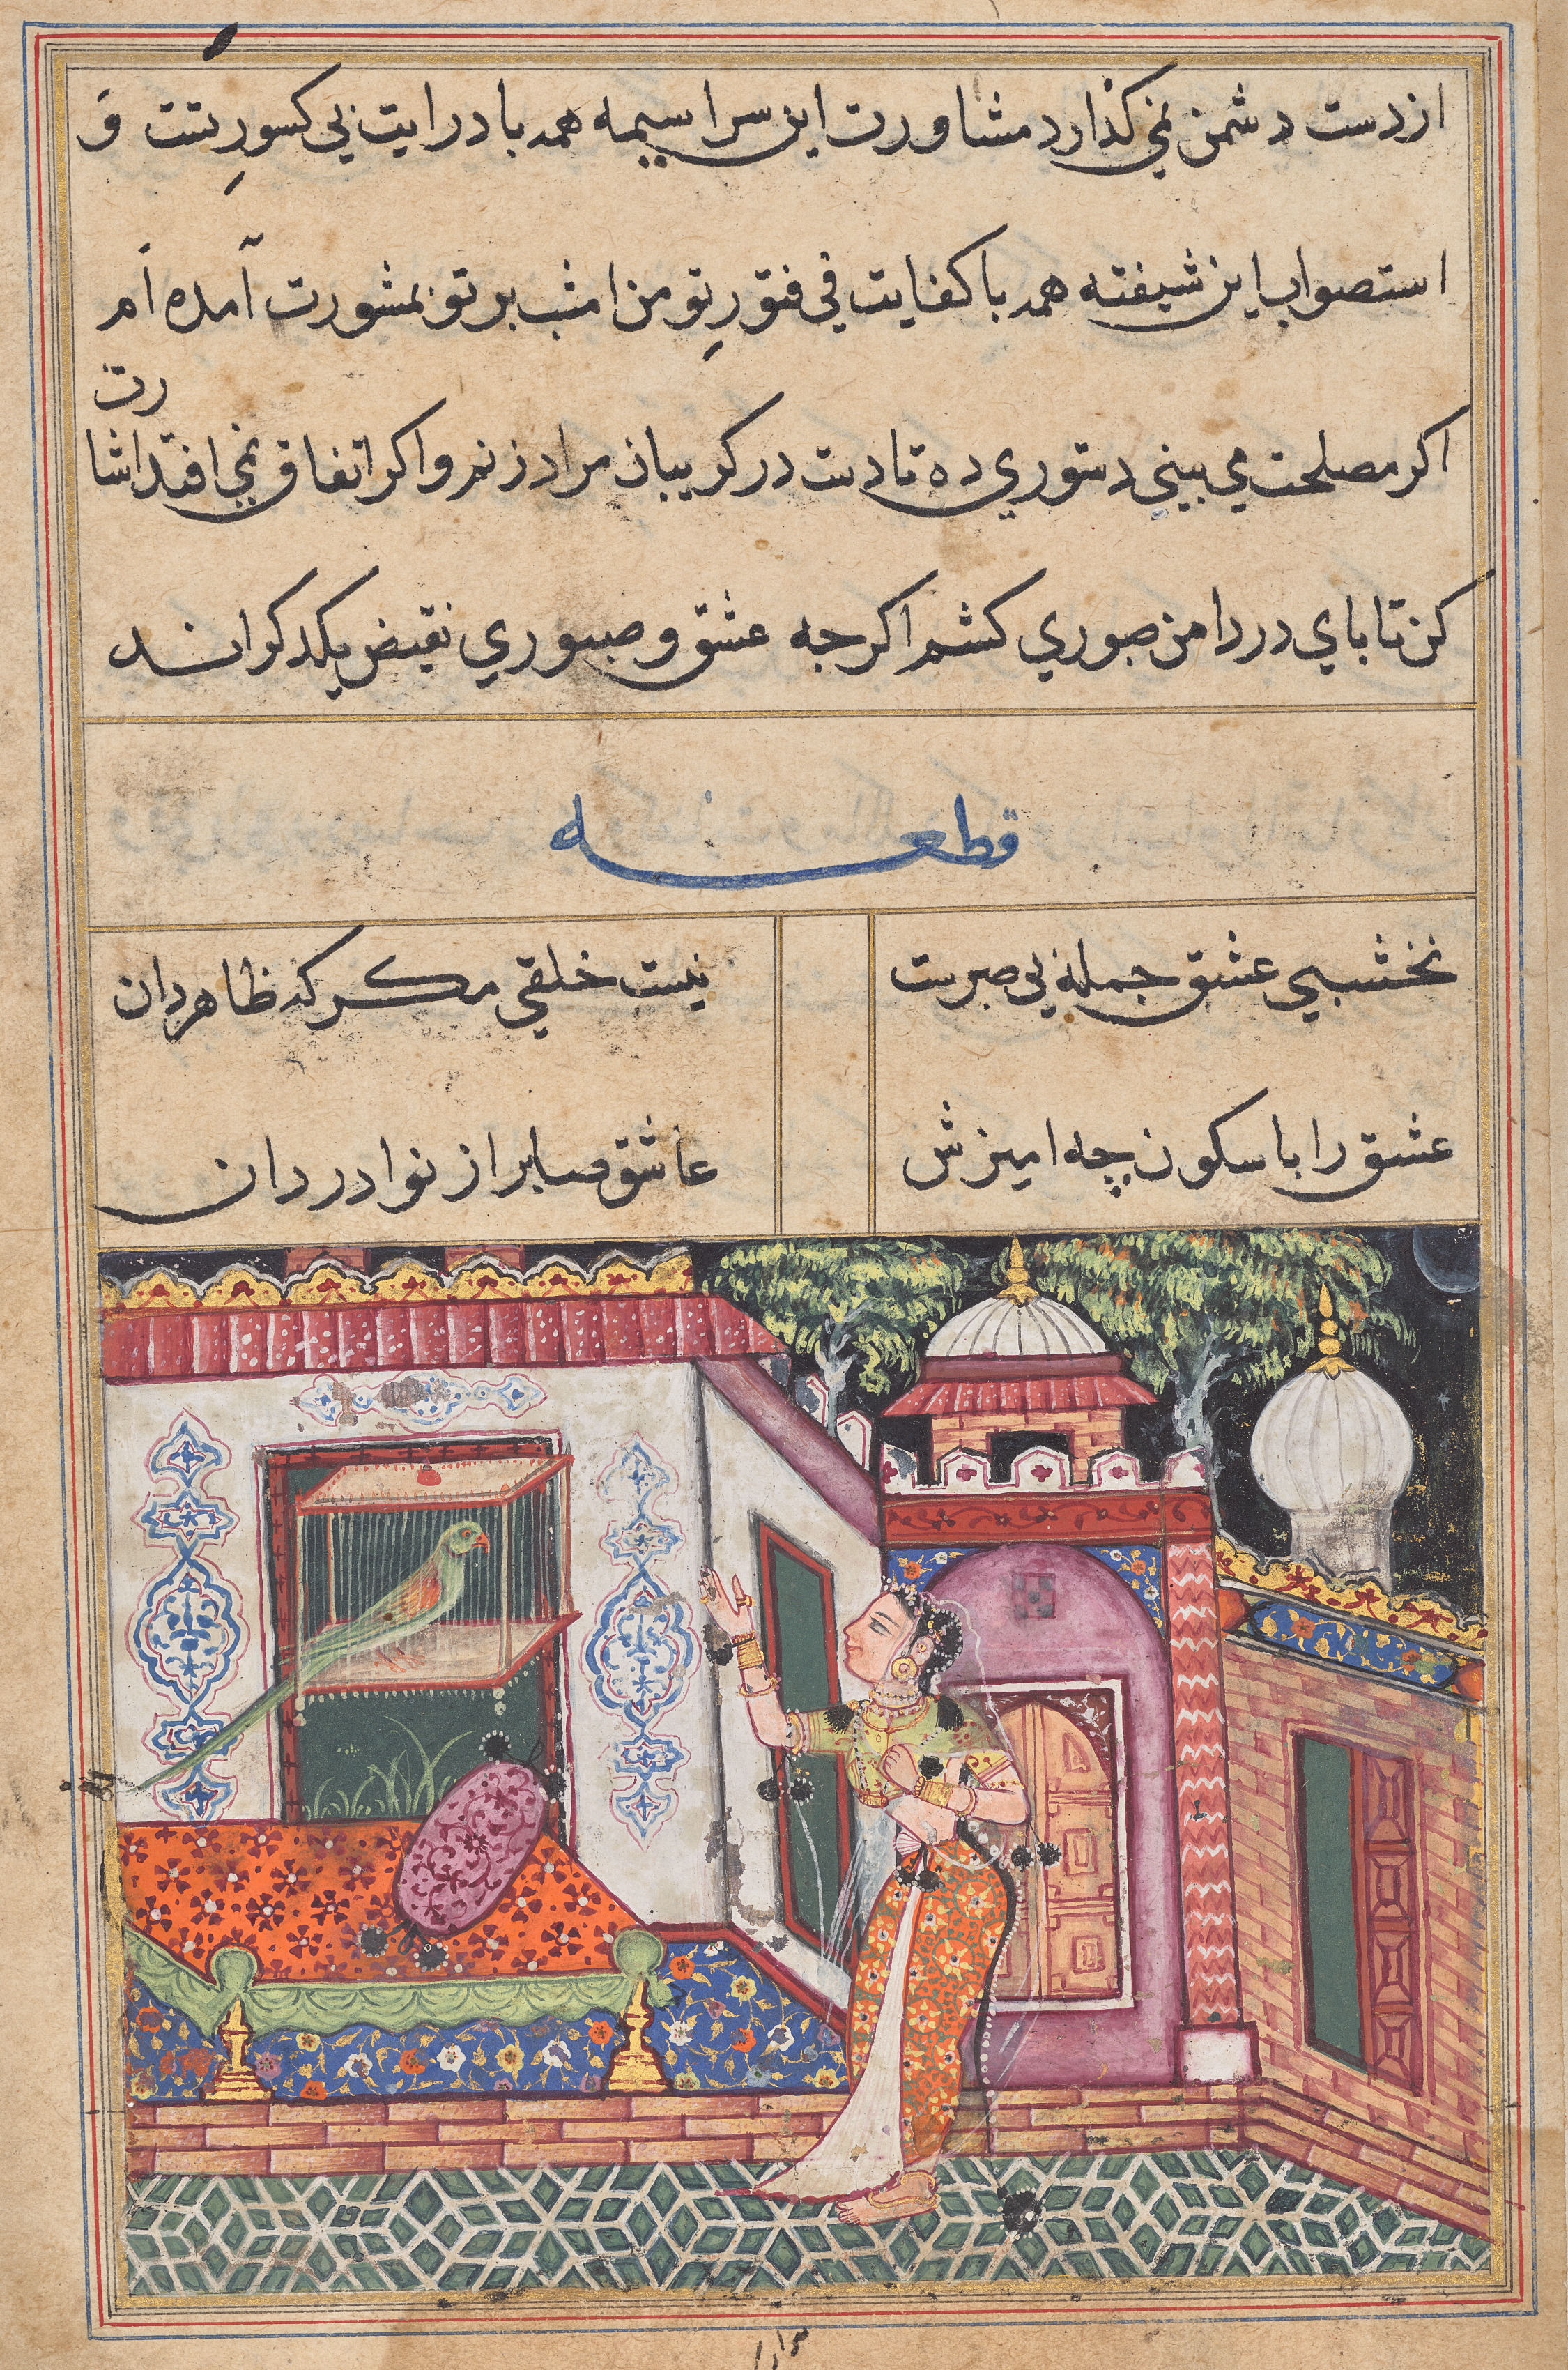 از دست دشمن نمي كذارد مشاورت اين سراسيمه همه با درايت بي كسورِ تست وَ
استصواب اين شيفته همه با كفايت في فتورِ تو من امشب بر تو بمشورت آمده اَم
اكر مصلحت مي بيني دستوري ده تا دست در كريبان مراد زنم و اكر اتفاق نمي افتد اشا
رت
كن تا باي در دامن صبوري كشم اكرجه عشق و صبوري نقيض يكدكر اند
قطعه
نخشبي عشق جمله بي صبريست
نيست خلقي مكر كه ظاهر دان
عشق را با سكون چه اميزش
عاشق صابر از نوادر دان